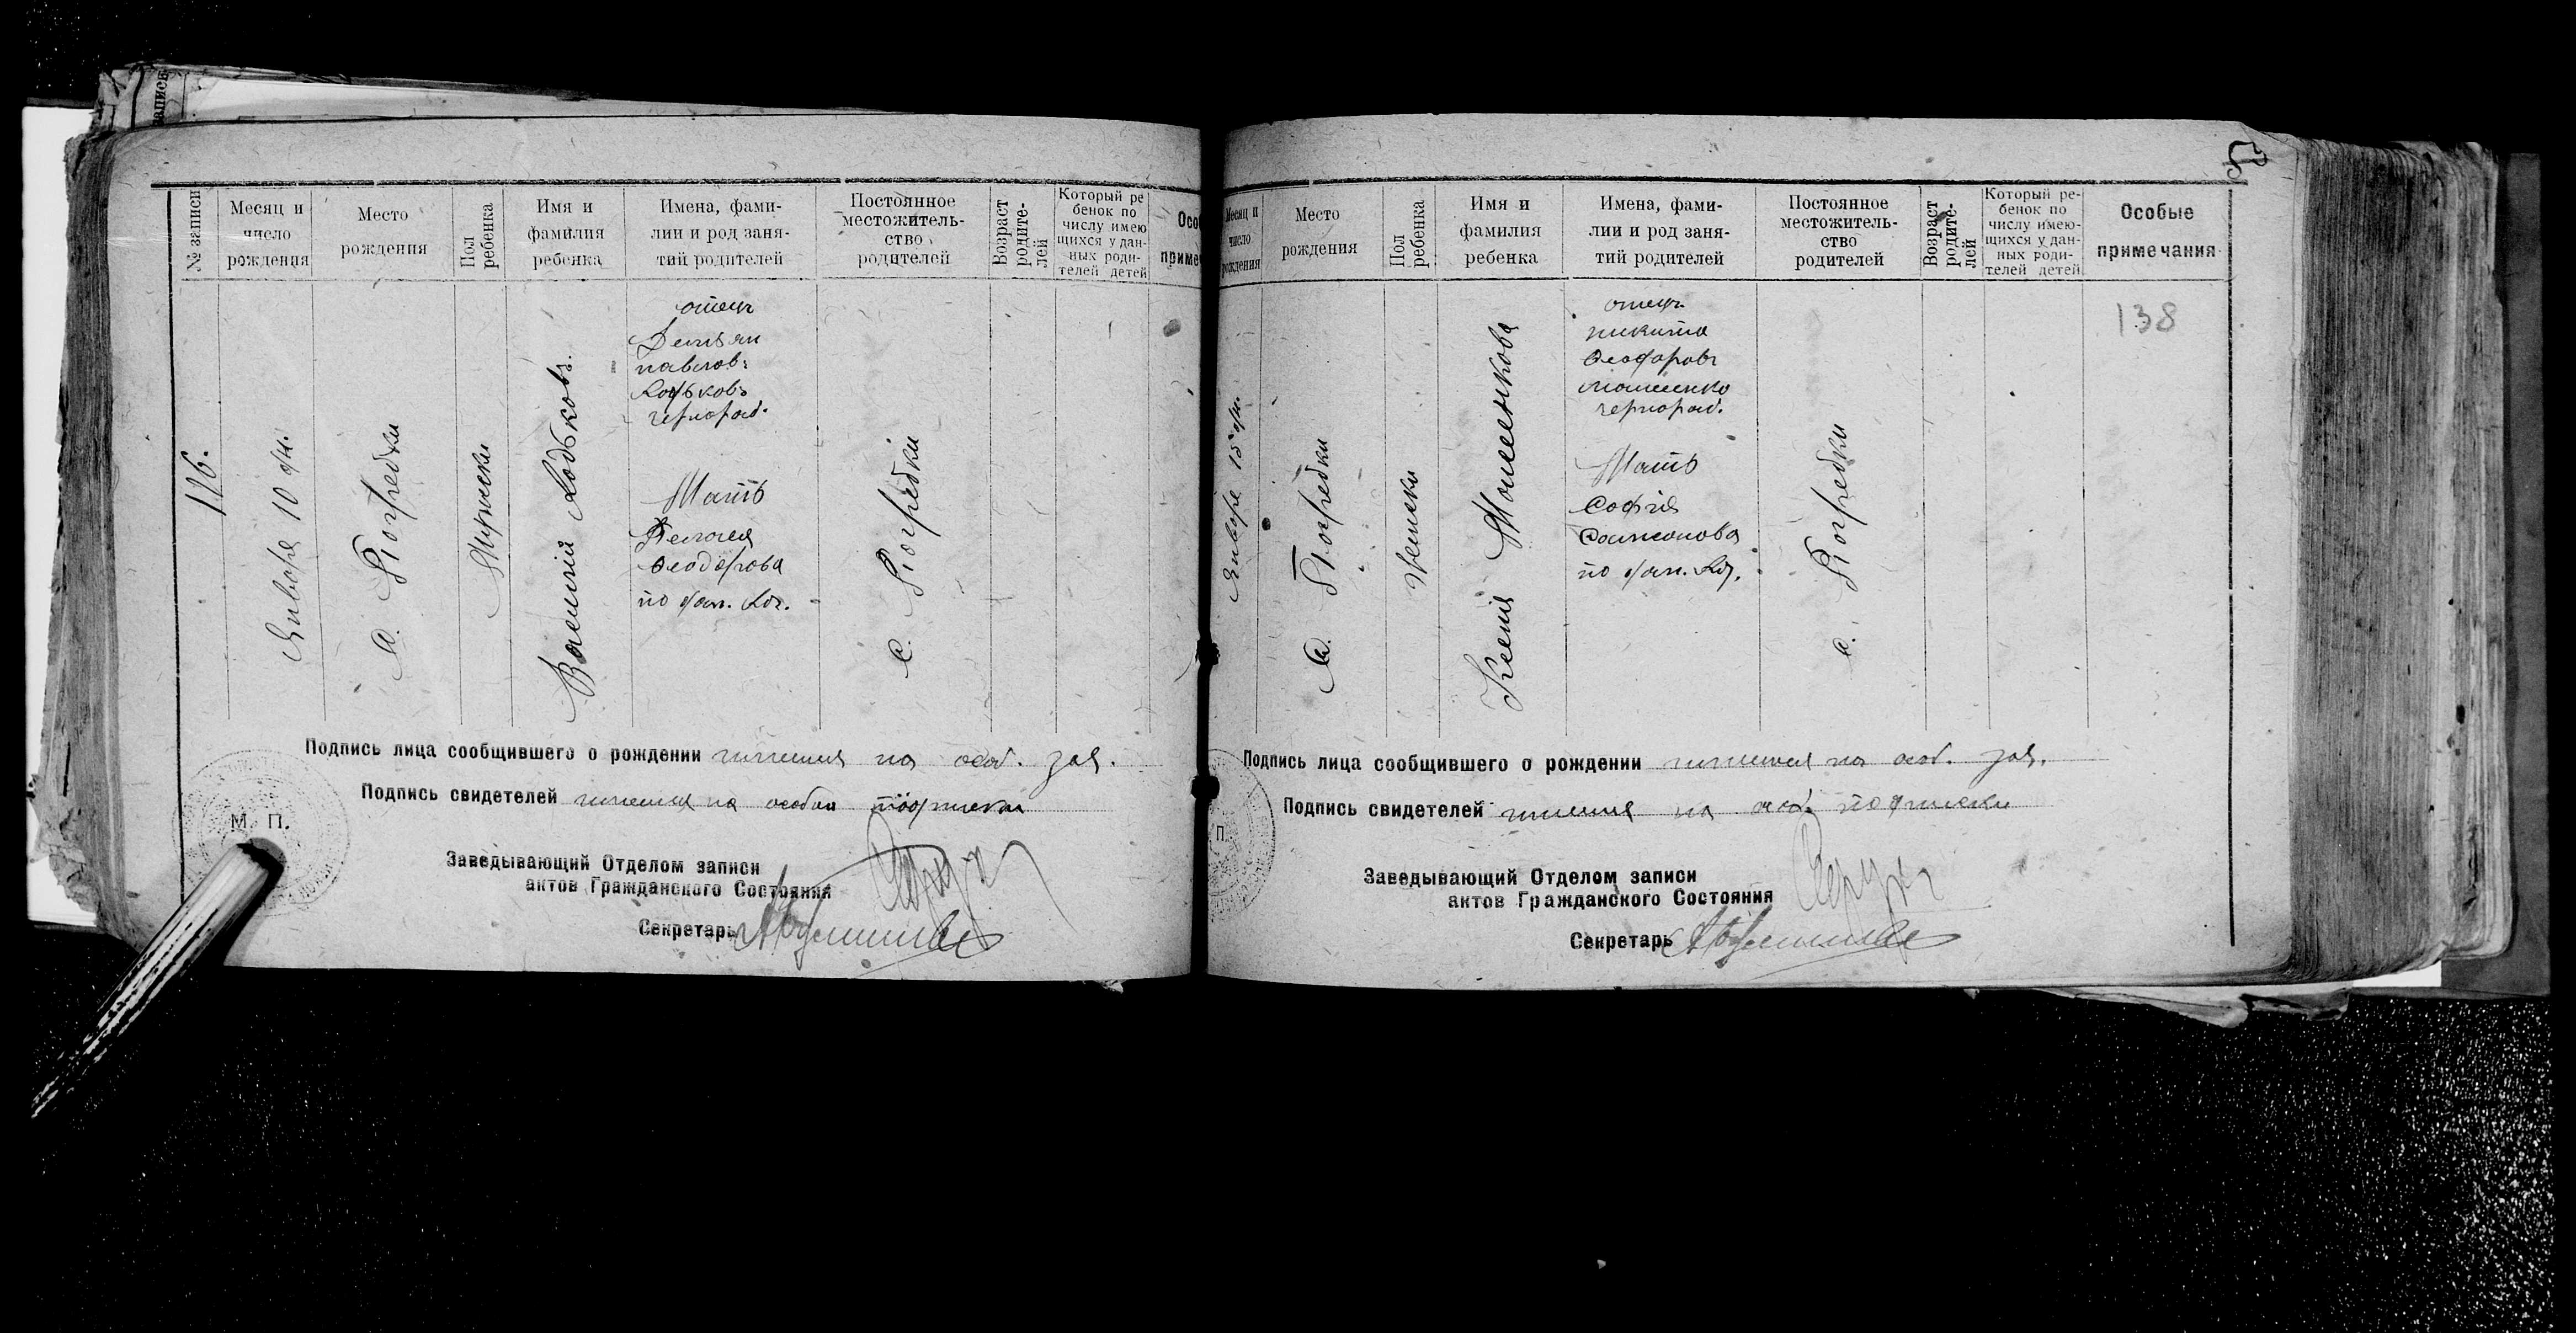 № записи
Месяц и
число
рождения
Место
рождения
Пол
ребенка
Имя и
фамилия
ребенка
Имена, фами-
лии и род заня-
тий родителей
Постоянное
местожитель-
ство
родителей
Возраст
родите-
лей
Который ре
бенок по
числу имею
щихся у дан-
ных роди-
телей детей
Осо
приме
116.
Января 10 дн.
с. Погребки
Мужески
Василий
отец
павлов
чернораб.
Мать
Феодорова
по фам.
с. Погребки
Подпись лица сообщившего о рождении на особ. зая.
Подпись свидетелей на особой подписки
М. П.
Заведывающий Отделом записи
актов Гражданского Состояния
Секретарь
Месяц и
число
рождения
Место
рождения
Пол
ребенка
Имя и
фамилия
ребенка
Имена, фами-
лии и род заня-
тий родителей
Постоянное
местожитель-
ство
родителей
Возраст
родите-
лей
Который ре-
бенок по
числу имею-
щихся у дан-
ных роди-
телей детей
Особые
примечания
138
Января 15 дн.
с. Погребки
Женски
Ксения Мошенкова
отец
никита
Феодоров
чернораб.
Мать
София
Самсонова
по фам.
с. Погребки
Подпись лица сообщившего о рождении на особ. зая.
Подпись свидетелей на особ. подписки
П.
Заведывающий Отделом записи
актов Гражданского Состояния
Секретарь